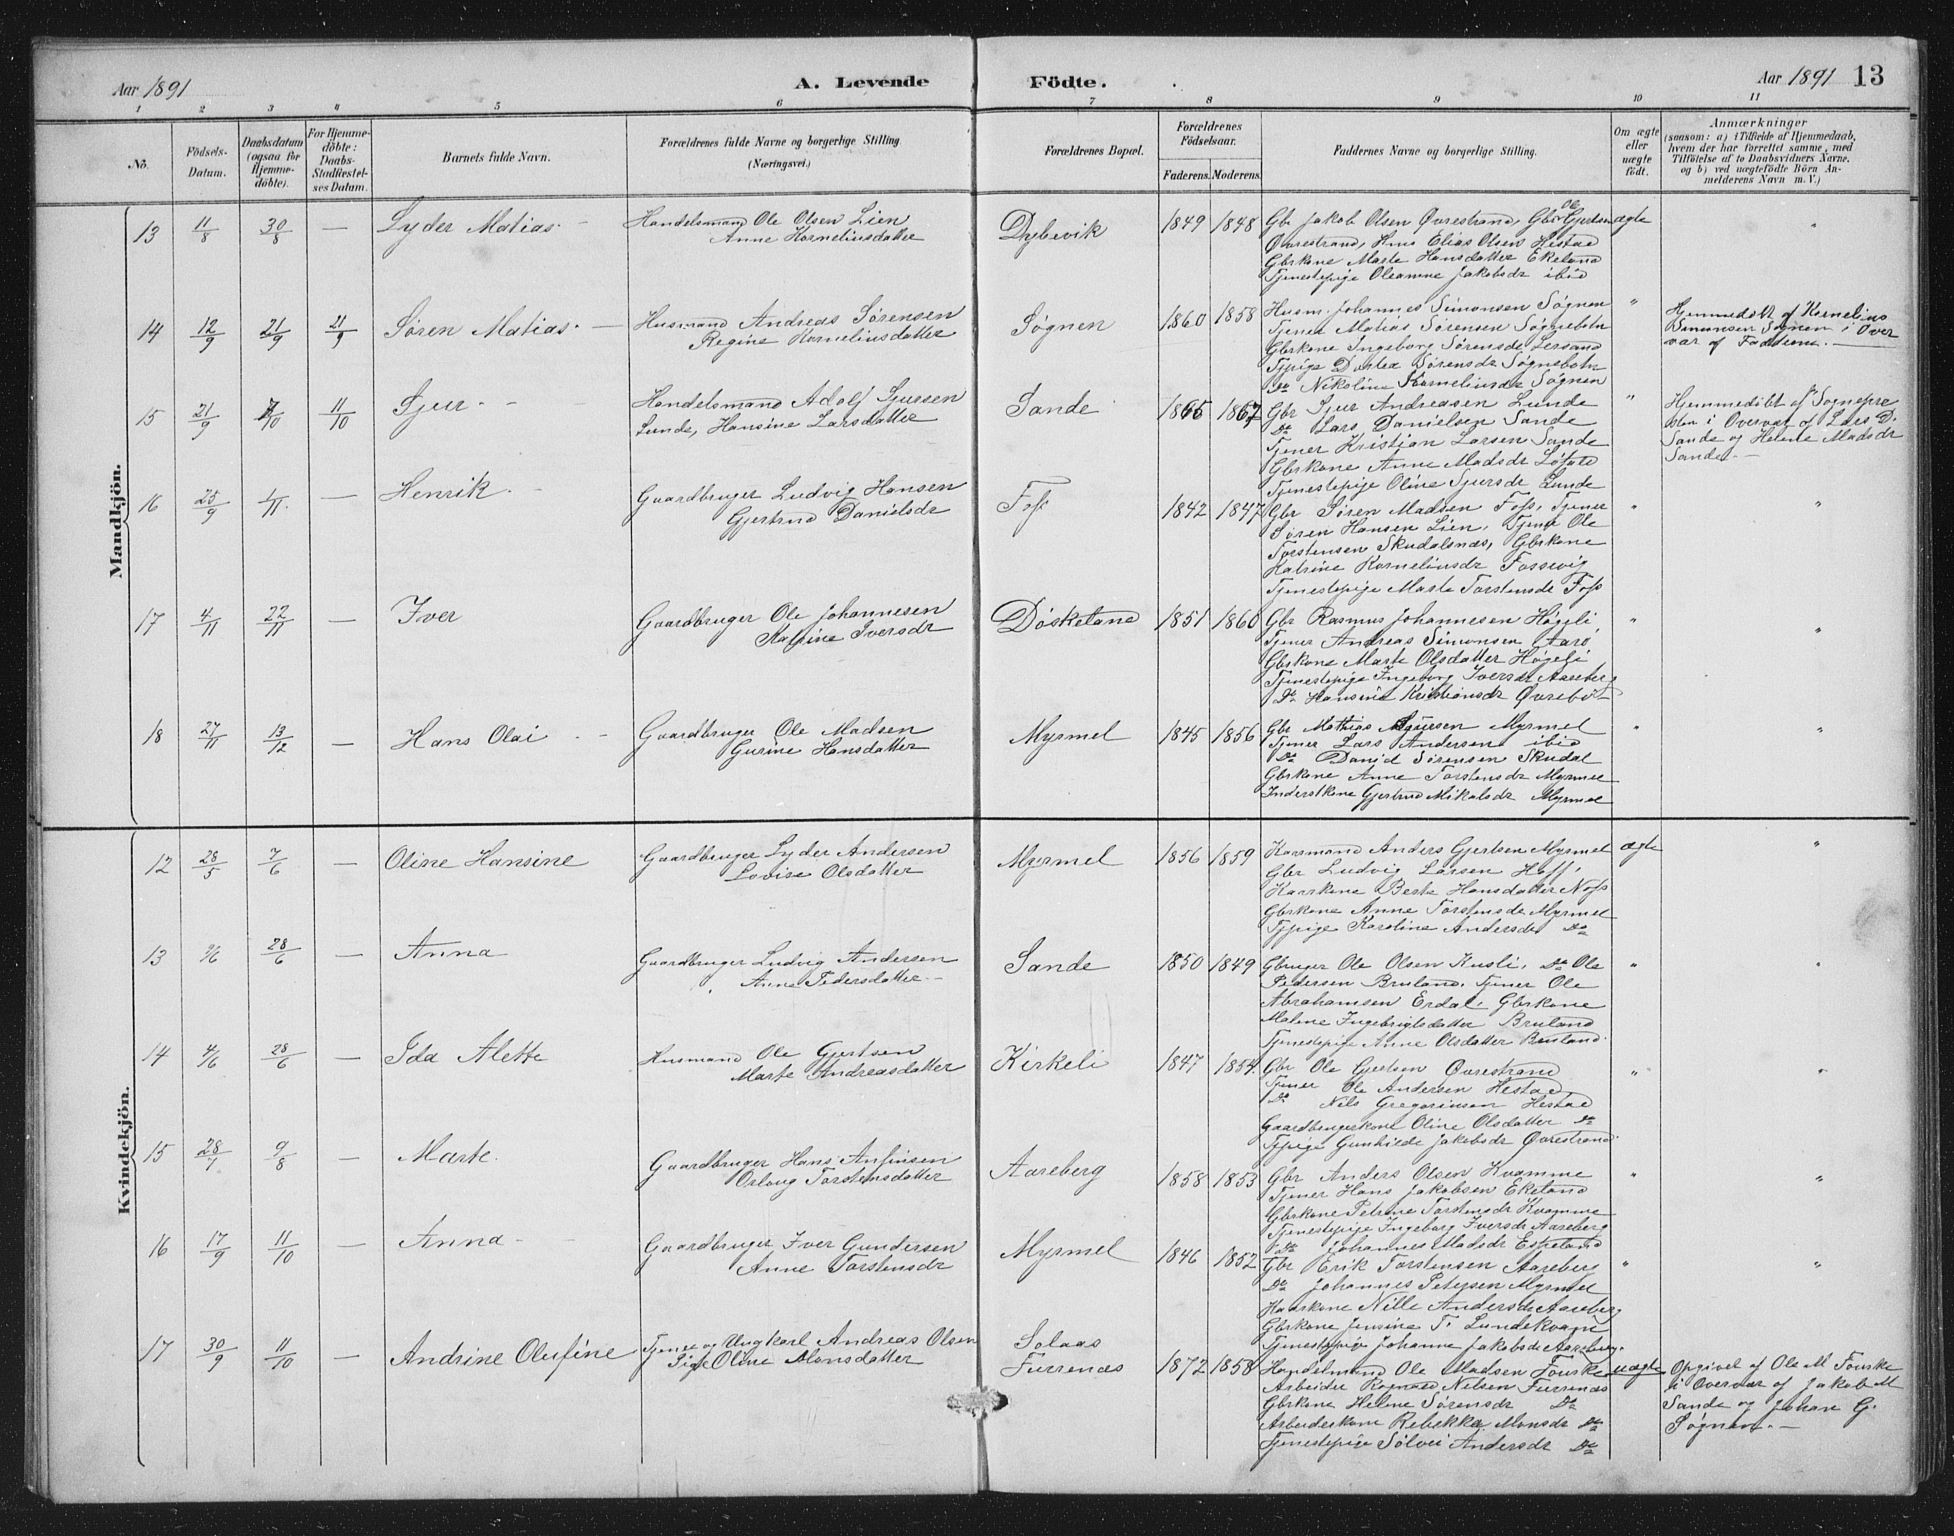 Aar 1891
A. Levende Födte.
Aar 1891 13
1 2 3 4 5 6 7 8 9 10 11
No.
Födsels-Datum.
Daabsdatum (ogsaa for Hjemmedöbte).
For Hjemmedöbte: Daabs-Stadfæstelses Datum.
Barnets fulde Navn.
Forældrenes fulde Navne og borgerlige Stilling (Næringsvei.)
Forældrenes Bopæl.
Forældrenes Födselsaar.
Faderens. Moderens.
Faddernes Navne og borgerlige Stilling.
Om ægte eller uægte födt.
Anmærkninger
(saasom: a) i Tilfælde af Hjemmedaab,
hvem der har forrettet samme, med
Tilföielse af to Daabsvidners Navne,
og b) ved uægtefödte Börn An-
melderens Navn m. V.)
Mandkjön.
13 11/8 30/8 — Lyder Matias
Handelsmand Ole Olsen Lien
Anne Kornelinsdatter
Dybevik 1849 1848
Gbr Jakob Olsen Øvrestrand, Gbr Ole Gjertsen ægte
Øvrestrand, Hms Elias Olsen Hestad
Gbrkone Marte Hansdatter Ekeland
Tjenestepige Oleanne Jakobsdr ibid
14 12/9 21/9 21/9 Søren Matias —
Husmand Andreas Sørensen
Regine Kornelinsdatter
Søgnen 1860 1858
Husm. Johannes Simonsen Søgnen "
Tjener Matias Sørensen Søgnebotn
Gbrkone Ingeborg Sørensdr Lersand
Tjpige Dortea Sørensdr Søgnebotn
Do Nikoline Kornelinsdr Søgnen
Hjemmedöbt af Kornelius
Simonsen Søgnen i Over
vær af Fadderne. —
15 21/9 4/10 11/10 Sjur — —
Handelsmand Adolf Sjursen
Lunde, Hansine Larsdatter
Sande 1865 1867
Gbr Sjur Andreasen Lunde "
Do Lars Danielsen Sande
Tjener Kristian Larsen Sande
Gbrkone Anne Madsdr Løfald
Tjenestepige Oline Sjursdr Lunde
Hjemmedöbt af Sognepre
sten i Overvær af Lars D.
Sande og Helene Madsdr
Sande. —
16 25/9 1/11 — Henrik —
Gaardbruger Ludvig Hansen
Gjertrud Danielsdr
Fos 1842 1847
Gbr Søren Madsen Fos, Tjener "
Søren Hansen Lien, Tjener Ole
Torstensen Skudalsnæs, Gbrkone
Katrine Kornelinsdr Fossevig
Tjenestepige Marte Torstensdr Fos
17 4/11 22/11 — Iver
Gaardbruger Ole Johannesen
Katrine Iversdr
Døskeland 1851 1860
Gbr Rasmus Johannesen Høgeli, "
Tjener Andreas Simonsen Aarø
Gbrkone Marte Olsdatter Høgeli
Tjenestepige Ingeborg Iversdr Aareberg
Do Hansine Kristiansdr Øvrebø
18 27/11 13/12 — Hans Olai —
Gaardbruger Ole Madsen
Gurine Hansdatter
Myrmel 1845 1856
Gbr Mathias Myrmel "
Tjener Lars Andersen ibid
Do Daniel Sørensen Skudal
Gbrkone Anne Torstensdr Myrmel
Inderstkone Gjertrud Mikalsdr Myrmel
Kvindekjön.
12 28/5 7/6 — Oline Hansine
Gaardbruger Lyder Andersen
Lovise Olsdatter
Myrmel 1856 1859
Kaarmand Anders Gjertsen Myrmel ægte
Gbr Ludvig Larsen Hoff,
Kaarkone Berte Hansdatter Nøfs
Gbrkone Anne Torstensdr Myrmel
Tjpige Karoline Andersdr Do
13 9/6 28/6 — Anna
Gaardbruger Ludvig Andersen
Anne Pedersdatter —
Sande 1850 1849
Gbruger Ole Olsen Kusli, Do Ole "
Pedersen Bruland, Tjener Ole
Abrahamsen Erdal, Gbrkone
Malene Ingebrigtsdatter Bruland
Tjenestepige Anne Olsdatter Bruland.
14 4/6 28/6 — Ida Alette
Husmand Ole Gjertsen
Marte Andreasdatter
Kirkeli 1847 1854
Gbr Ole Gjertsen Øvrestrand "
Tjener Ole Andersen Hestad
Do Nils Gregoriusen Hestad
Gaardbrugerkone Oline Olsdatter Do
Tjpige Gunhilde Jakobsdr Øvrestrand.
15 28/7 9/8 — Marte.
Gaardbruger Hans Anfinsen
Orlaug Torstensdatter
Aareberg 1858 1853
Gbr Anders Olsen Kvamme "
Tjener Hans Jakobsen Ekeland
Gbrkone Petrine Torstensdr Kvamme
Tjenestepige Ingeborg Iversdr Aareberg
Do Johannes Madsdr Eskeland
16 17/9 11/10 — Anna —
Gaardbruger Iver Gundersen
Anne Torstensdr
Myrmel 1846 1852
Gbr Erik Torstensen Aareberg "
Do Johannes Petersen Myrmel
Kaarkone Nille Andersdr Aareberg
Gbrkone Jensine T. Lundekvam
Tjenestepige Johanne Jakobsdr Aareberg.
17 30/9 11/10 — Andrine Olufine
Tjener og Ungkarl Andreas Olsen
Pige Oline Monsdatter
Solaas
Furrenæs 1872 1858
Handelsmand Ole Madsen Fourske uægte
Arbeider Ragnald Nilsen Furrenæs
Gbrkone Helene Sørensdr Do
Arbeiderkone Rebekka Monsdr Do
Tjenestepige Sølvei Andersdr Do
Opgivet af Ole M Fourske
i Overvær af Jakob M
Sande og Johan G.
Søgnen. —